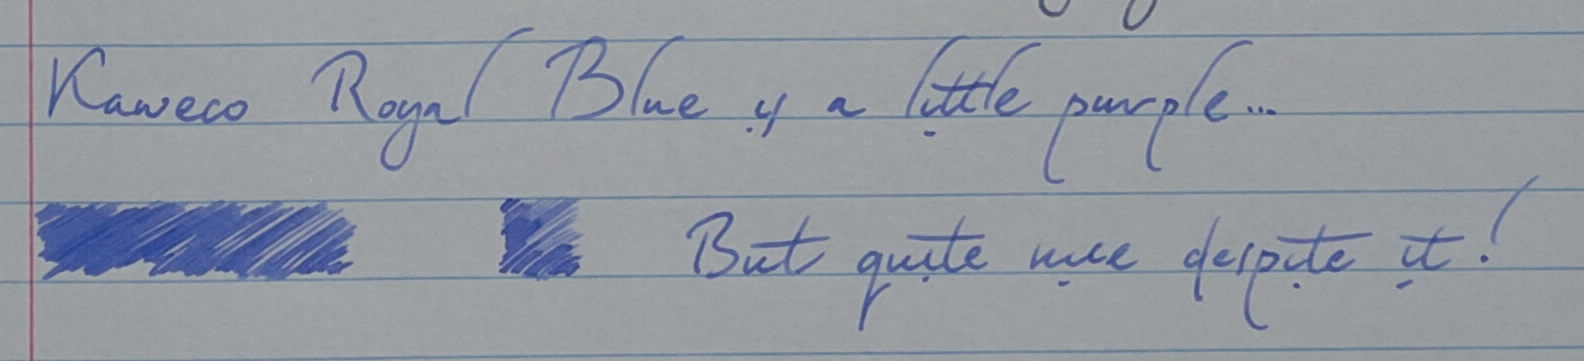 Kaweco Royal Blue is a little purple...
But quite nice despite it!